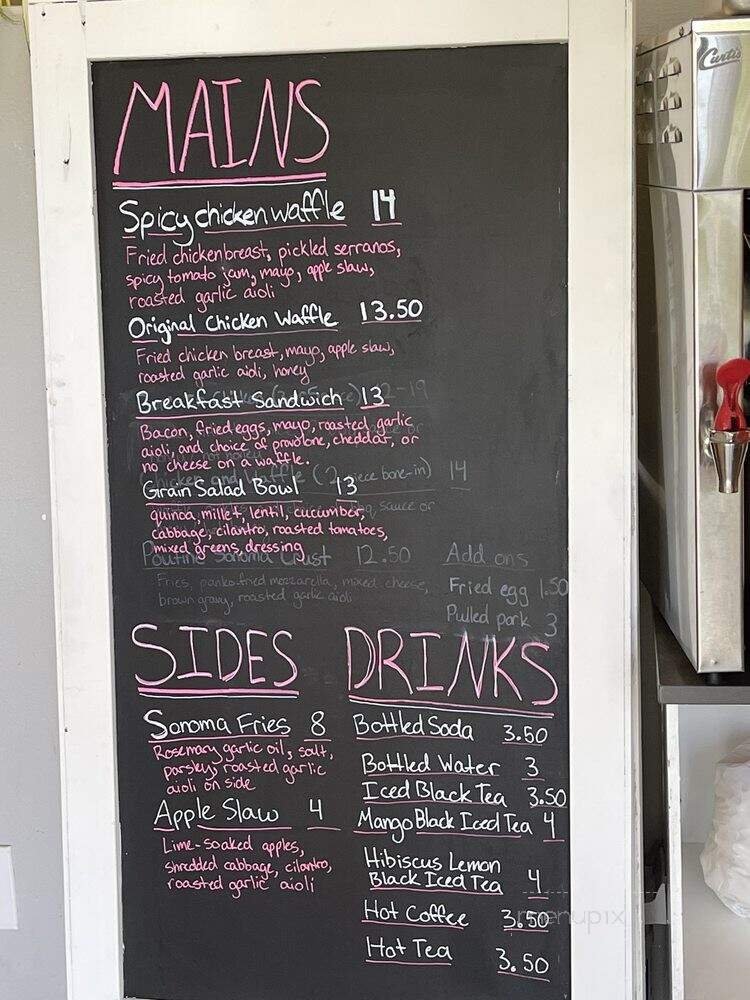 MAINS
Spicy chicken waffle 14
Fried chicken breast, pickled serranos,
spicy tomato jam, mayo, apple slaw,
roasted garlic aioli
Original Chicken Waffle 13.50
Fried chicken breast, mayo, apple slaw,
roasted garlic aioli, honey
Breakfast Sandwich 13
Bacon, fried eggs, mayo, roasted garlic
aioli, and choice of provolone, cheddar, or
no cheese on a waffle.
(2 piece bone-in) 14
Grain Salad Bowl 13
quinoa, millet, lentil, cucumber,
cabbage, cilantro, roasted tomatoes,
mixed greens, dressing
sauce or
Poutine Sonoma Crust 12.50
Fries, panko fried mozzarella, mixed cheese,
brown gravy, roasted garlic aioli
Add ons
Fried egg 1.50
Pulled pork 3
SIDES
Sonoma Fries 8
Rosemary garlic oil, salt,
parsley, roasted garlic
aioli on side
Apple Slaw 4
Lime-soaked apples,
shredded cabbage, cilantro,
roasted garlic aioli
DRINKS
Bottled Soda 3.50
Bottled Water 3
Iced Black Tea 3.50
Mango Black Iced Tea 4
Hibiscus Lemon
Black Iced Tea 4
Hot Coffee 3.50
Hot Tea 3.50
Curtis
menupix